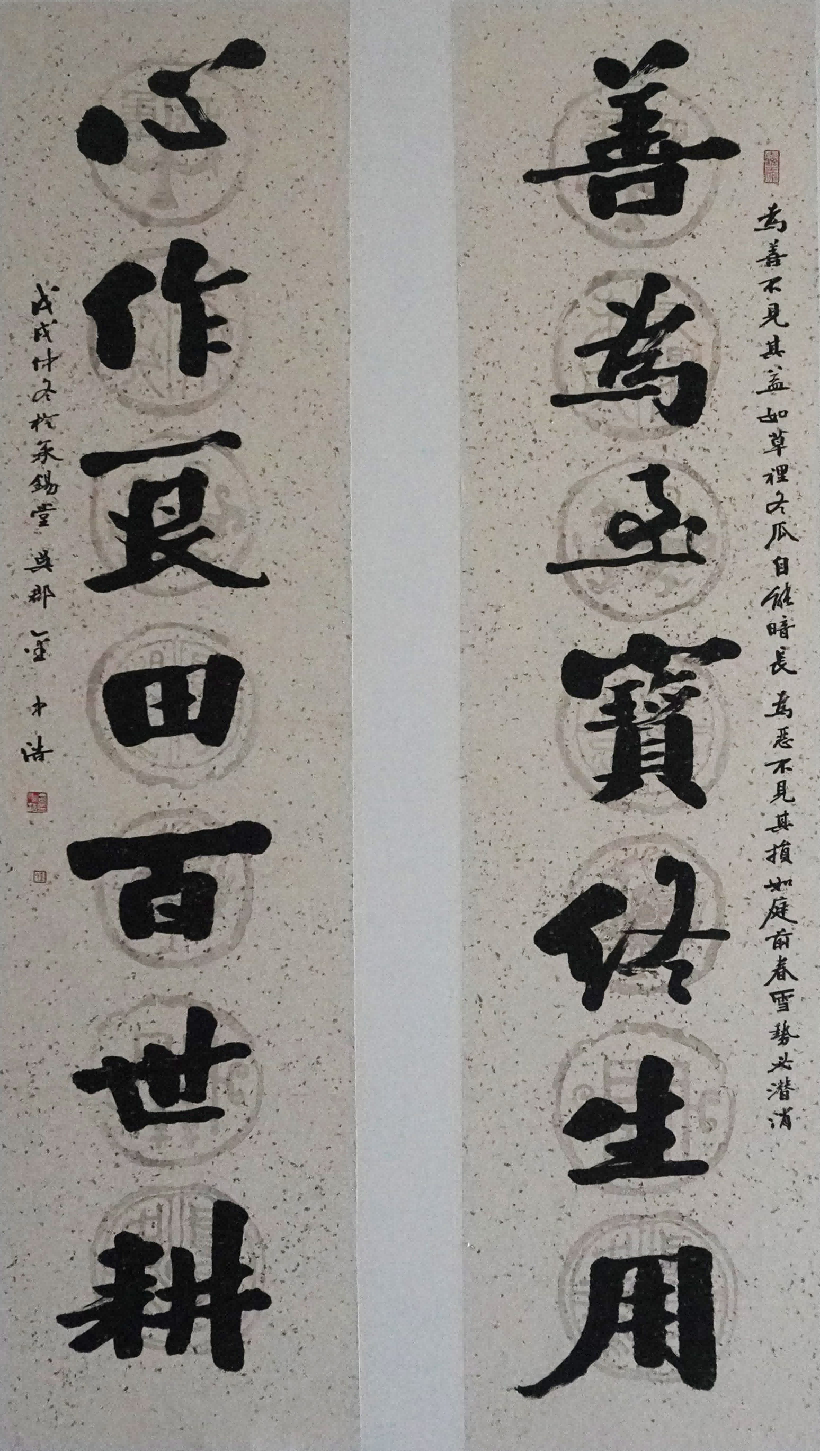 為善不見其益如草裡冬瓜自能暗長 為惡不見其損如庭前春雪勢必潛消
善為至寶終生用
心作良田百世耕
戊戌仲冬於承錫堂 吳郡 金中浩